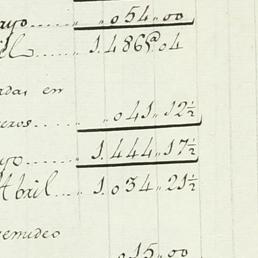 ayo.... „ 054 „ 00
il... 1. 486 „ 04
adas en
eros.... „ 041 „ 12½
yo.... 1. 444 „ 17½
Abril... 1. 034 „ 21½
„ 015 „ 00